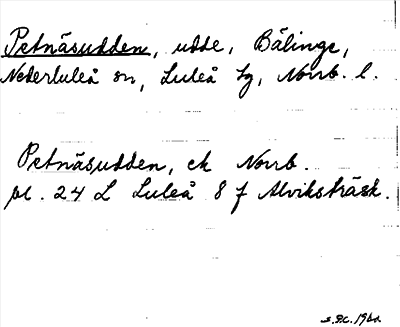 Petnäsudden, udde, Bälinge,
Nederluleå sn, Luleå tg, Norrb. l.
Petnäsudden, ek Norrb.
bl. 24 L Luleå 8 f Alvikstråsk.